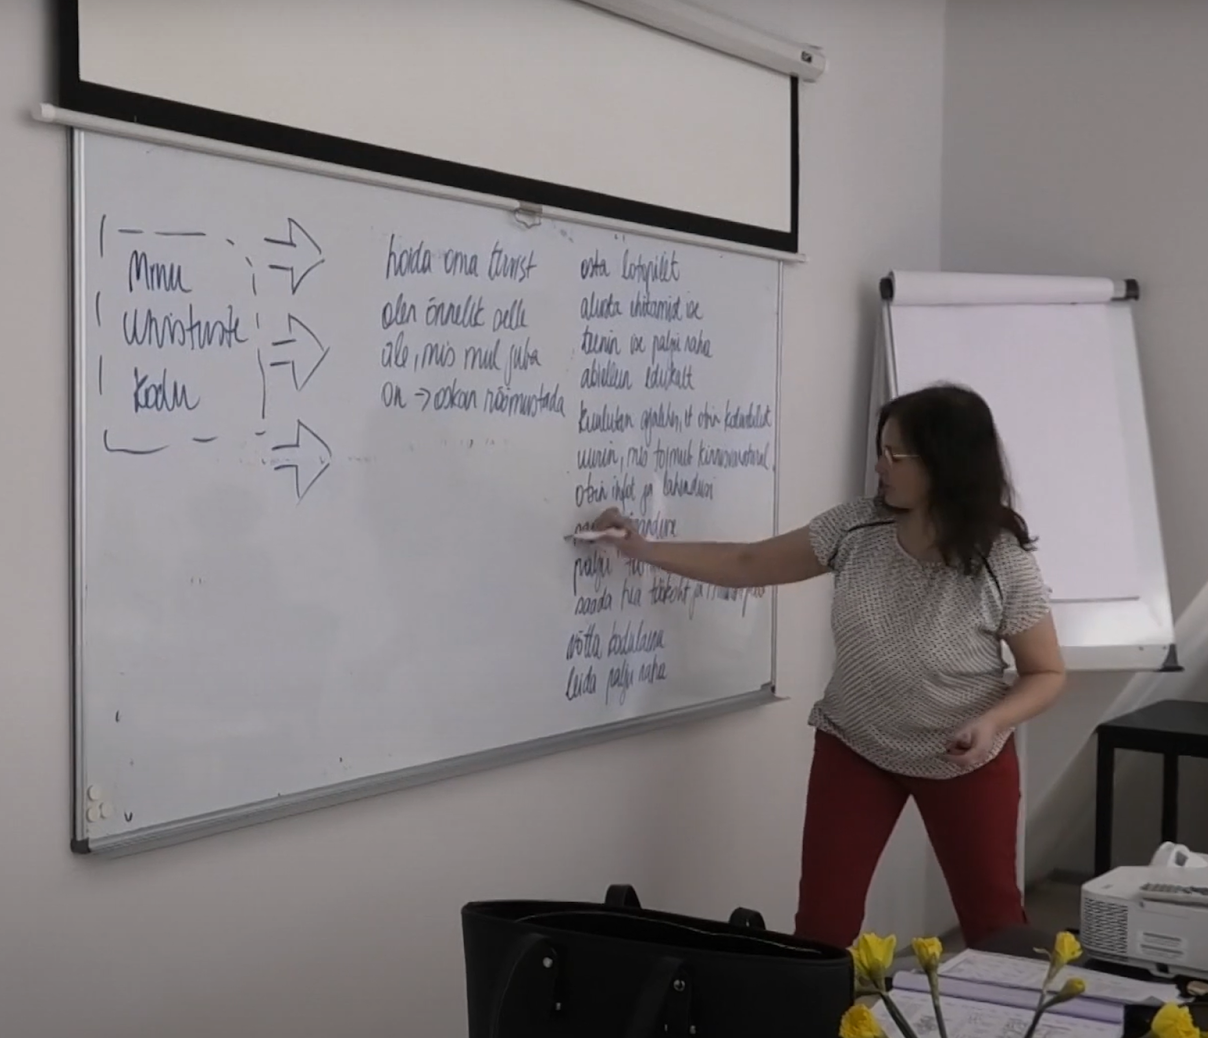 Minu
Unistuste
kodu
hoida oma tervist
olen õnnelik selle
üle, mis mul juba
on → oskan rõõmustada
osta lotopilet
alusta ehitamist ise
teenin ise palju raha
abiellun edukalt
kuulutan ajalehes, et otsin kodu
uurin, mis toimub kinnisvaraturul
otsin infot ja lahendusi
palju
saada hea töökoht ja
võtta kodulaenu
leida palju raha